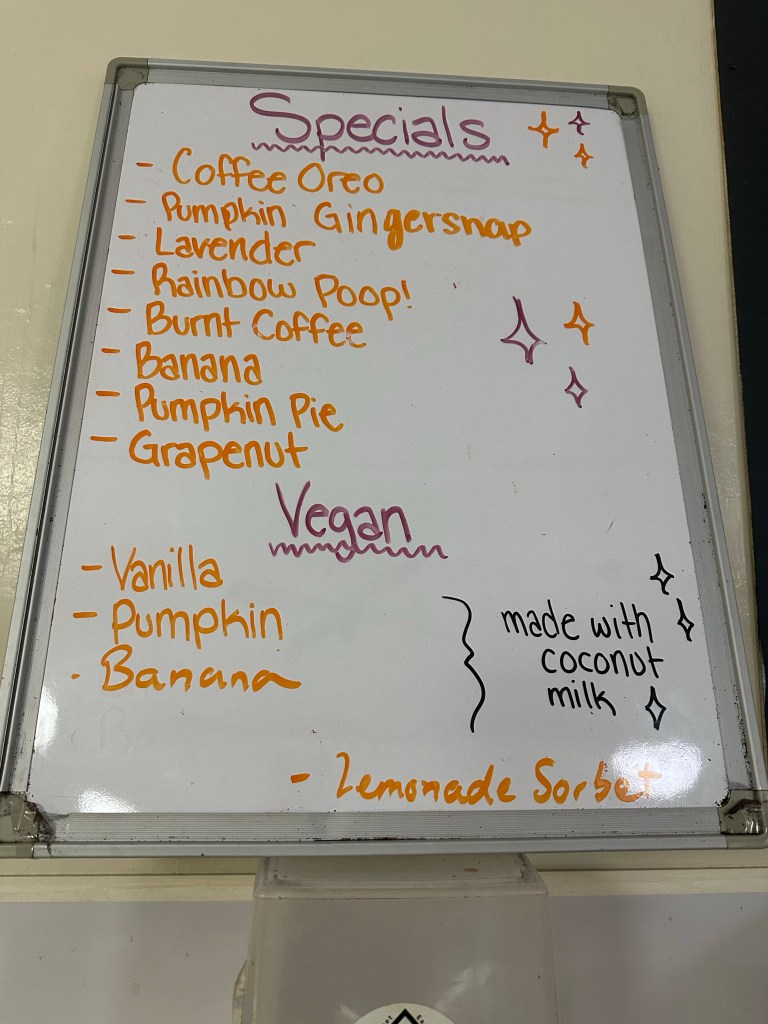 Specials
- Coffee Oreo
- Pumpkin Gingersnap
- Lavender
- Rainbow Poop!
- Burnt Coffee
- Banana
- Pumpkin Pie
- Grapenut
Vegan
- Vanilla
- Pumpkin
- Banana
made with
coconut
milk
- Lemonade Sorbet